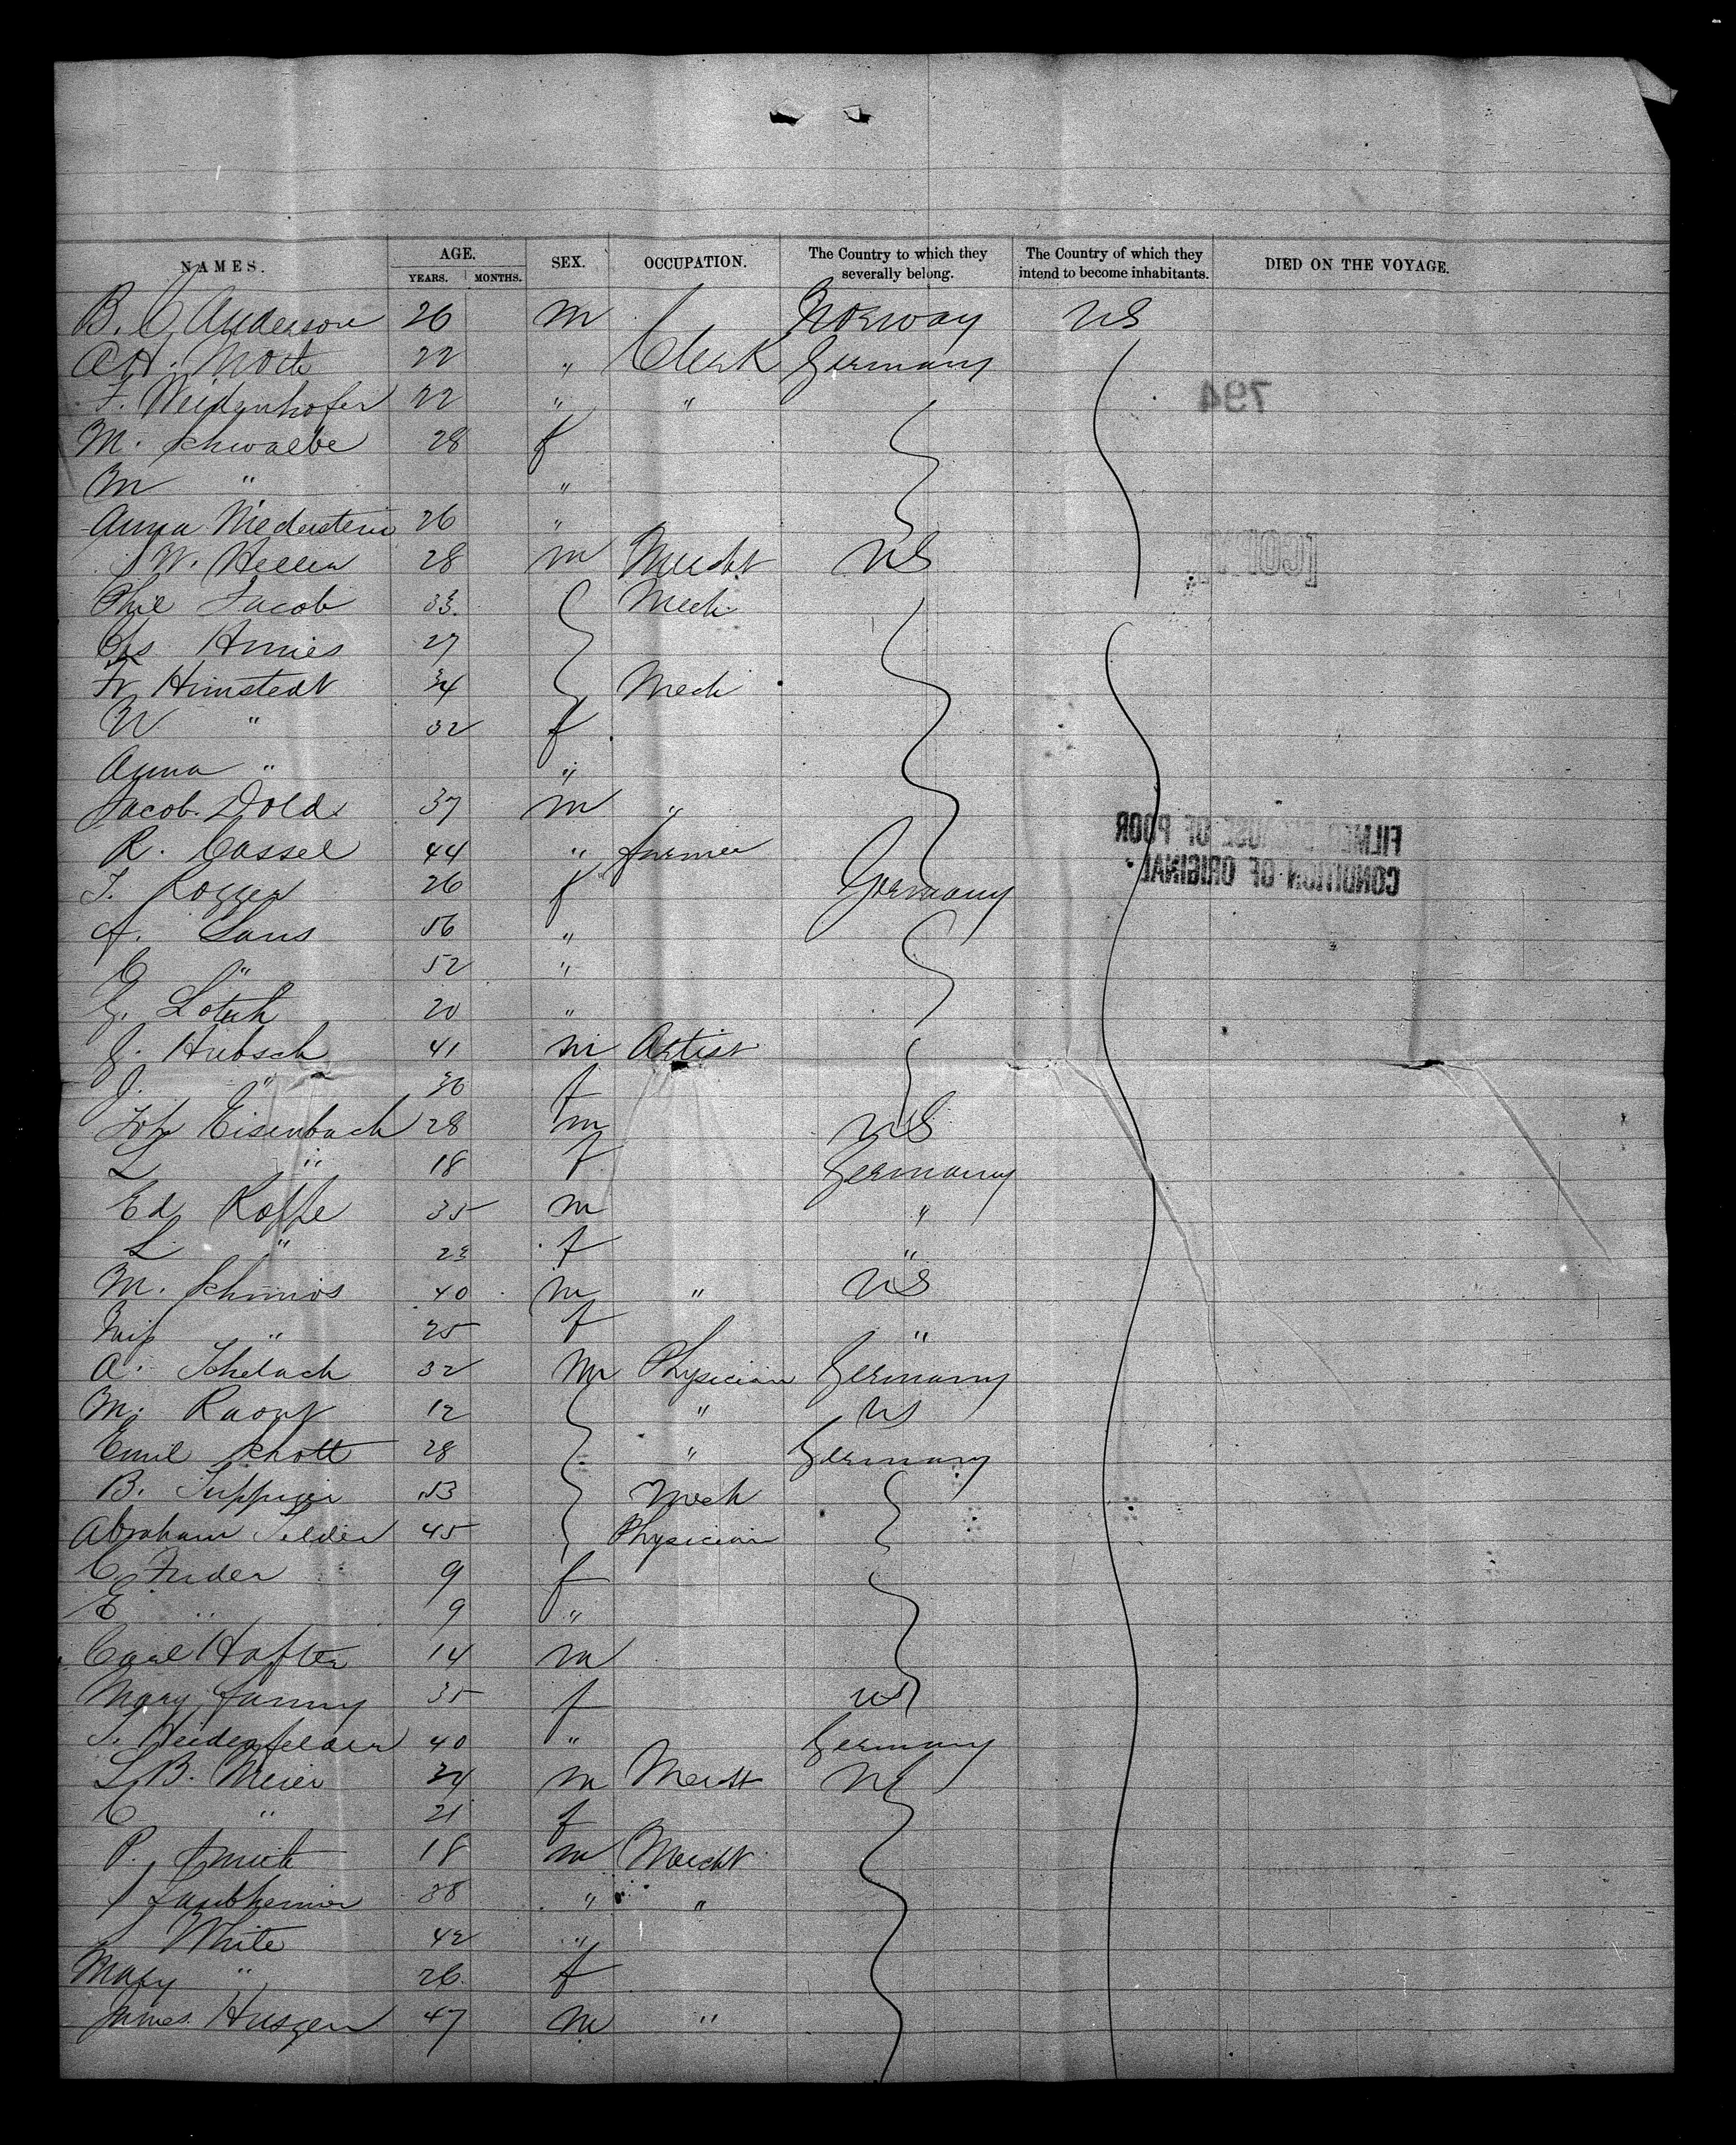 NAMES. AGE. YEARS. MONTHS. SEX. OCCUPATION. The Country to which they severally belong. The Country of which they intend to become inhabitants. DIED ON THE VOYAGE.
B. C. Anderson 26 m Norway US
22 " Clerk Germany
F. Weidenhofer 22 " "
794
M. Schwalbe 28 f
M " "
Anna Niederstein 26 "
[COPY]
W. Heller 28 m Mercht US
Phil Jacob 33 Mech
Chs 27
Fr Himstedt 34 Mech
W " 32 f
Anna " "
Jacob Dold 37 m "
FILMED BECAUSE OF POOR
CONDITION OF ORIGINAL
R. Cassel 44 " farmer
26 f Germany
A. 56 "
" 52 "
20 "
J. Hubsch 41 m Artist
J. " 30 f
Joh Eisenbach 28 m US
L " 18 f Germany
Ed Koppe 35 m "
L " 23 f "
M. 40 m " US
" 25 f "
A. 32 m Physician Germany
M. 12 " US
Emil Schott 28 " Germany
B. 53 Mech
Abraham 45 Physician
9 f
E " 9 "
Carl Hafter 14 m
Mary Fanny 35 f US
40 " Germany
L. B. Meier 34 m Mercht US
C " 21 f
P. 18 m Mercht
38 " "
White 42 "
Mary " 26 f
James Husgen 47 m "